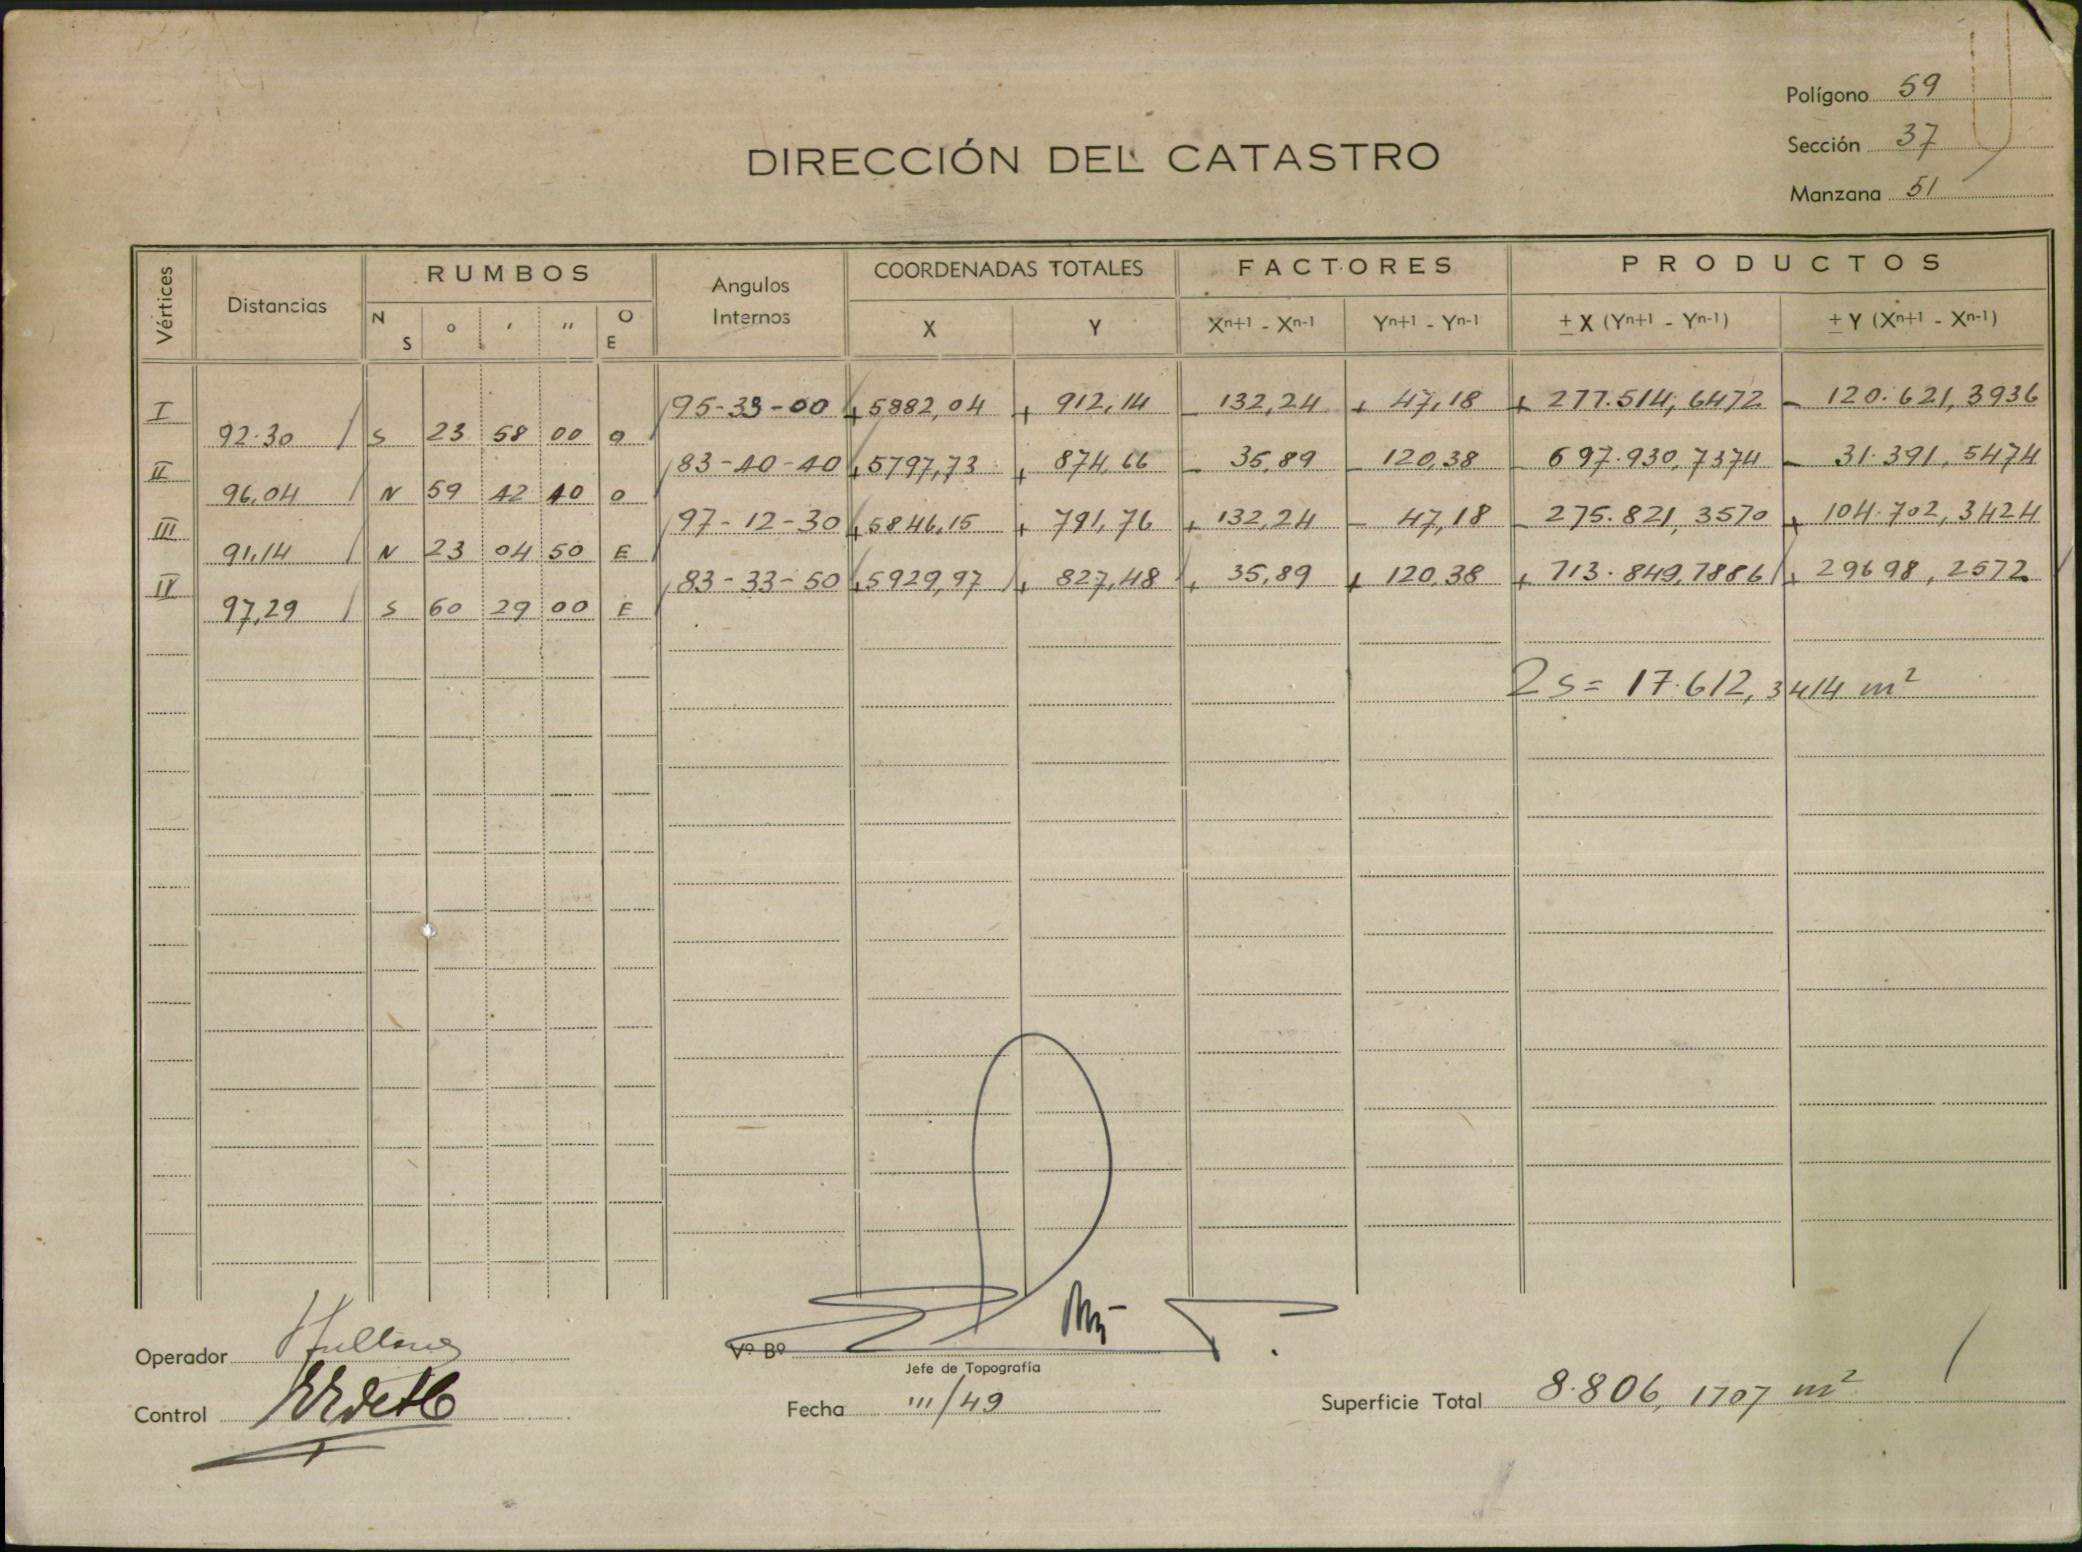 Polígono 59
Sección 37
Manzana 51
DIRECCIÓN DEL CATASTRO
Vértices Distancias RUMBOS Angulos Internos COORDENADAS TOTALES FACTORES PRODUCTOS
N S o ' '' O E X Y Xn+1 - Xn-1 Yn+1 - Yn-1 ± X (Yn+1 - Yn-1) ± Y (Xn+1 - Xn-1)
I 95-33-00 +5882,04 + 912,14 - 132,24 + 47,18 + 277.514,6472 - 120.621,3936
92.30 S 23 58 00 O
II 83-40-40 +5797,73 + 874,66 - 35,89 - 120,38 - 697.930,7374 - 31.391,5474
96,04 N 59 42 40 O
III 97-12-30 +5846,15 + 791,76 + 132,24 - 47,18 - 275.821,3570 + 104.702,3424
91,14 N 23 04 50 E
IV 83-33-50 +5929,97 + 827,48 + 35,89 + 120,38 + 713.849,7886 + 29698,2572
97,29 S 60 29 00 E
2 S = 17.612,3414 m²
Operador
Vº Bº
Jefe de Topografía
Control
Fecha III/49
Superficie Total 8.806,1707 m²